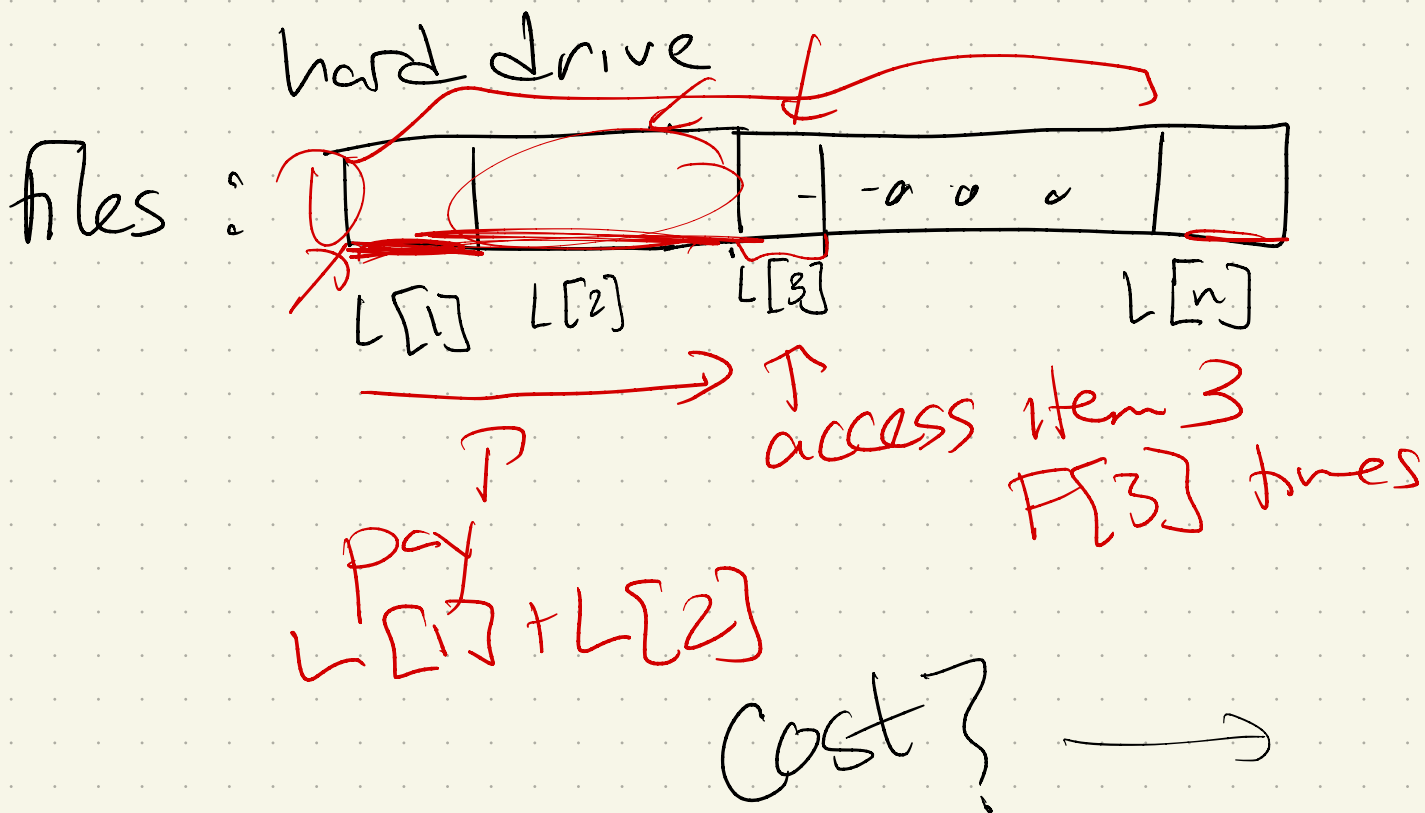 hard drive
files :
L[1] L[2] L[3] L[n]
access item 3
F[3] times
pay
L[1] + L[2]
Cost? →